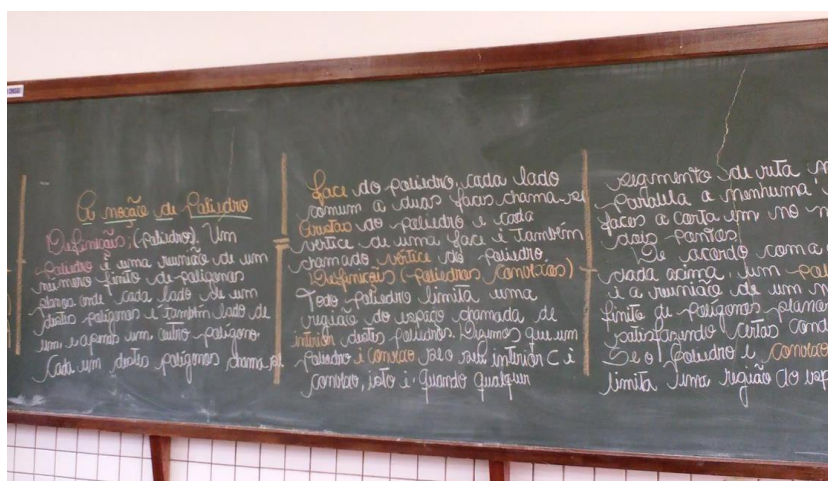 A noção de Poliedro
Definição: (poliedro). Um
poliedro é uma reunião de um
número finito de polígonos
planos onde cada lado de um
destes polígonos é também lado de
um e apenas um, outro polígono
Cada um destes polígonos chama-se
face do poliedro, cada lado
comum a duas faces chama-se
arestas do poliedro e cada
vértice de uma face é também
chamado vértice do poliedro
Definições (poliedros convexos)
Todo poliedro limita uma
região do espaço chamada de
interior destes poliedros. Digamos que um
poliedro é convexo se o seu interior C é
convexo, isto é, quando qualquer
segmento de reta
paralela a nenhuma
faces a corta em no
dois pontos
De acordo com a
dada acima, um
é a reunião de um
finito de polígonos planos
satisfazendo certas
Se o poliedro é convexo
limita uma região do